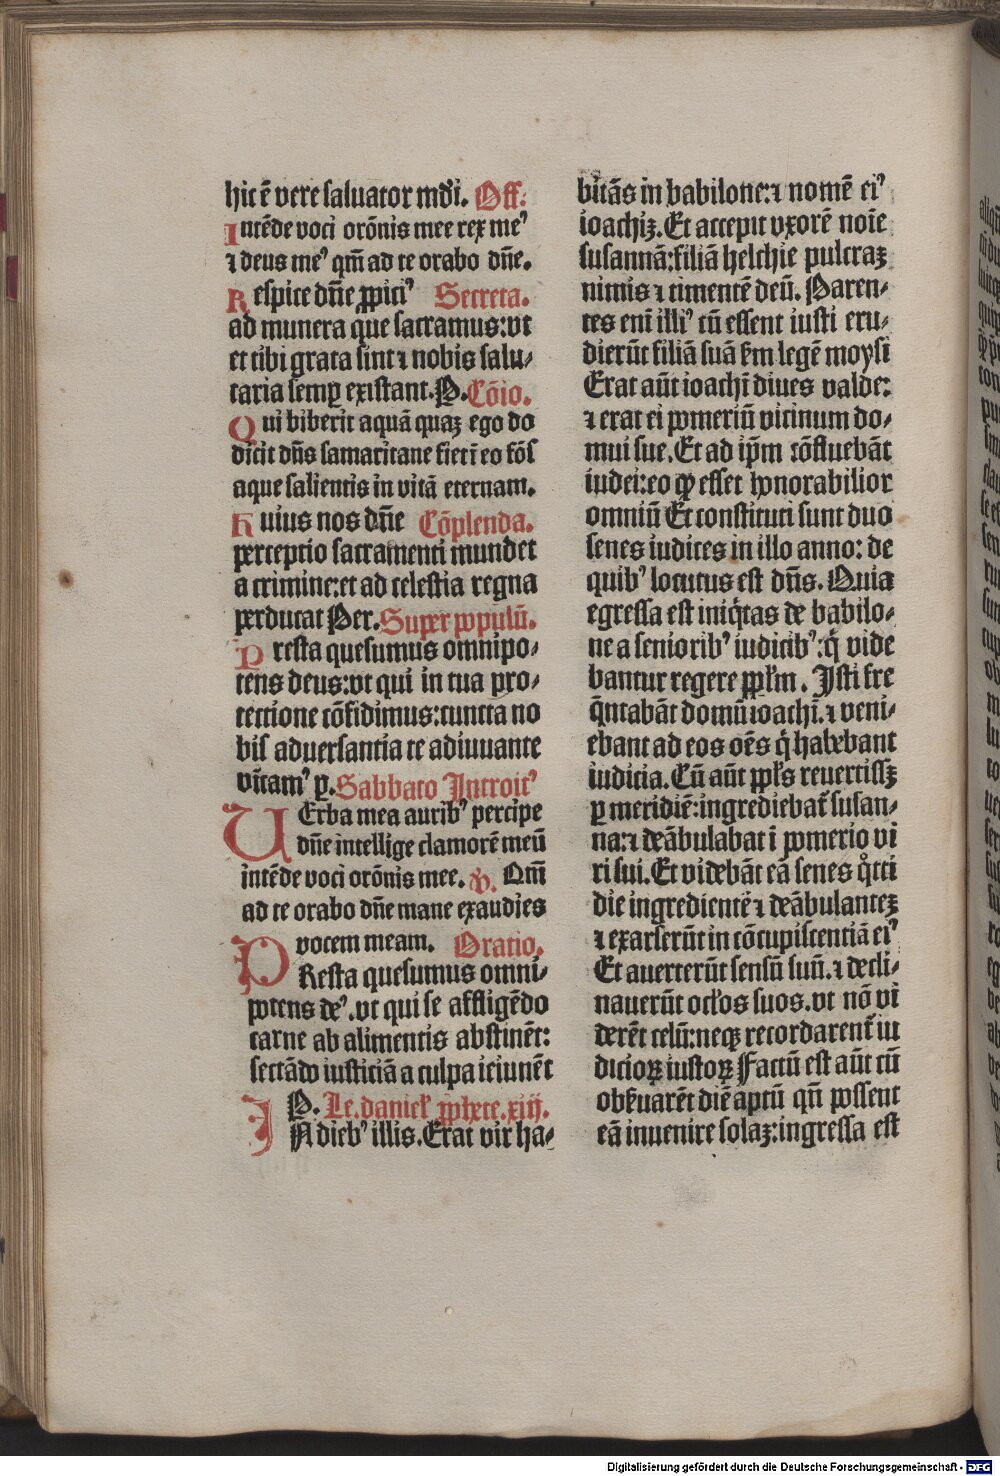 hic ē vere saluator mūdi. Off.
Intēde voci orōnis mee rex me⁹
⁊ deus me⁹ qm̄ ad te orabo dn̄e.
Respice dn̄e ꝓpici⁹ Secreta.
ad munera que sacramus: vt
et tibi grata sint ⁊ nobis salu-
taria semꝑ existant. P. Cōio.
Qui biberit aquā quaꝫ ego do
dicit dn̄s samaritane fiet ī eo fōs
aque salientis in vitā eternam.
Huius nos dn̄e Cōplenda.
perceptio sacramenti mundet
a crimine: et ad celestia regna
perducat Per. Super populū.
Presta quesumus omnipo-
tens deus: vt qui in tua pro-
tectione cōfidimus: cuncta no
bis aduersantia te adiuuante
vīcam⁹ p. Sabbato Introit⁹
UErba mea aurib⁹ percipe
dn̄e intellige clamorē meū
intēde voci orōnis mee. v̄. Qm̄
ad te orabo dn̄e mane exaudies
vocem meam. Oratio.
PResta quesumus omni-
potens de⁹. vt qui se affligēdo
carne ab alimentis abstinēt:
sectādo iusticiā a culpa ieiunēt
P. Le. daniel' ꝓphete. xiij.
IN dieb⁹ illis. Erat vir ha-
bitās in babilone: ⁊ nomē ei⁹
ioachiꝫ. Et accepit vxorē noīe
susannā: filiā helchie pulcraꝫ
nimis ⁊ timentē deū. Paren-
tes enī illi⁹ cū essent iusti eru-
dierūt filiā suā fm legē moysi
Erat aūt ioachī diues valde:
⁊ erat ei pomeriū vicinum do-
mui sue. Et ad ip̄m cōfluebāt
iudei: eo ꝙ esset honorabilior
omniū Et constituti sunt duo
senes iudices in illo anno: de
quib⁹ locutus est dn̄s. Quia
egressa est iniq̇tas de babilo-
ne a seniorib⁹ iudicib⁹: q̇ vide
bantur regere ppl'm. Isti fre
q̄ntabāt domū ioachī. ⁊ veni-
ebant ad eos oēs q̇ habebant
iudicia. Cū aūt ppl's reuertissꝫ
ꝑ meridiē: ingrediebat᷑ susan-
na: ⁊ deābulabat ī pomerio vi
ri sui. Et videbāt eā senes q̊tti
die ingredientē ⁊ deābulanteꝫ
⁊ exarserūt in cōcupiscentiā ei⁹
Et auerterūt sensū suū. ⁊ decli-
nauerūt ocl'os suos. vt nō vi
derēt celū: neqꝫ recordarent᷑ iu
dicioꝝ iustoꝝ Factū est aūt cū
obẜuarēt diē aptū qn̄ possent
eā inuenire solaꝫ: ingressa est
Digitalisierung gefördert durch die Deutsche Forschungsgemeinschaft - DFG